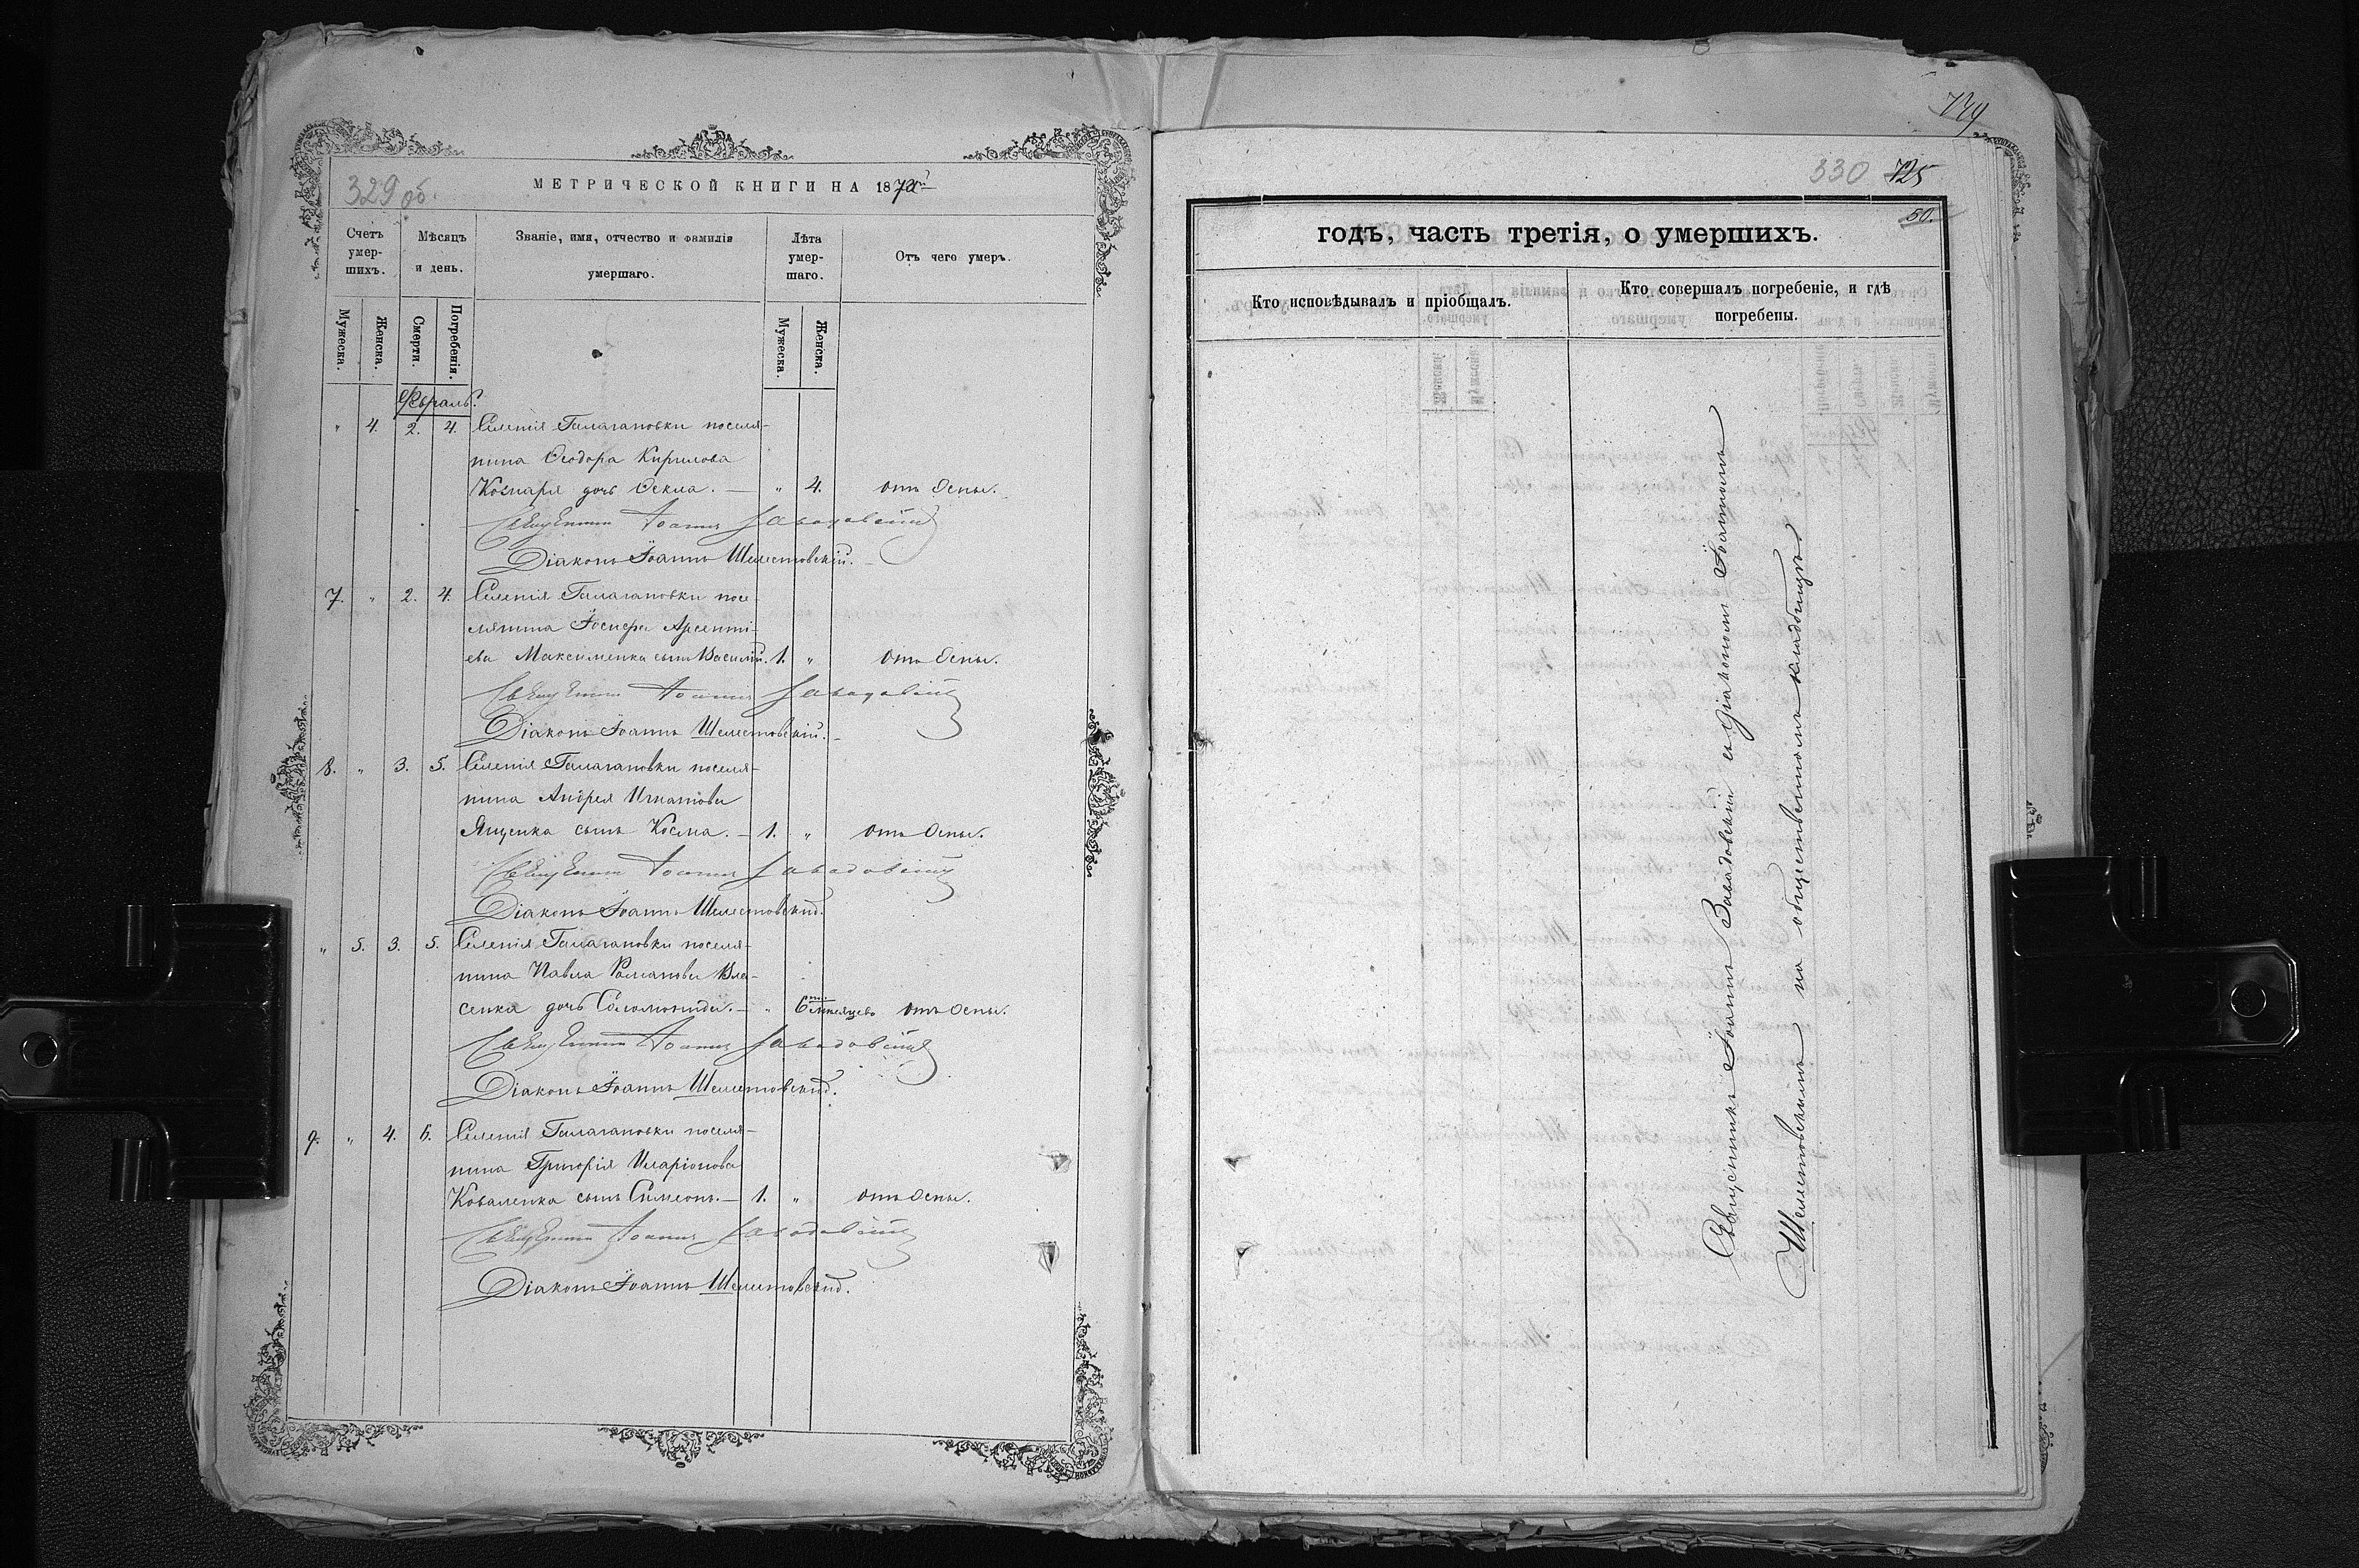 329 об.
МЕТРИЧЕСКОЙ КНИГИ НА 187
Счетъ умер-шихъ.
Мѣсяцъ и день.
Званіе, имя, отчество и фамилія умершаго.
Лѣта умер-шаго.
Отъ чего умеръ.
Мужеска.
Женска.
Смерти.
Погребенія.
Мужеска.
Женска.
Февраль.
" 4. 2. 4. Селенія Галагановки поселя-
нина Ѳеодора Кирилова
дочь Ѳекла. — " 4. отъ Оспы.
Священникъ Іоаннъ Завадовскій
Діаконъ Іоаннъ Шелестовскій.
7. " 2. 4. Селенія Галагановки посе-
лянина Іосифа Арсенті-
ева Максименка сынъ Василій. 1. " отъ Оспы.
Священникъ Іоаннъ Завадовскій
Діаконъ Іоаннъ Шелестовскій.
8. " 3. 5. Селенія Галагановки поселя-
нина Андрея Игнатова
Яценка сынъ Косма. — 1. " отъ Оспы.
Священникъ Іоаннъ Завадовскій
Діаконъ Іоаннъ Шелестовскій.
" 5. 3. 5. Селенія Галагановки поселя-
нина Павла Романова Вла-
сенка дочь Соломонида. — " 6ти мѣсяцевъ отъ Оспы.
Священникъ Іоаннъ Завадовскій
Діаконъ Іоаннъ Шелестовскій.
9. " 4. 6. Селенія Галагановки поселя-
нина Григорія Иларіонова
Коваленка сынъ Симеонъ. — 1. " отъ Оспы.
Священникъ Іоаннъ Завадовскій
Діаконъ Іоаннъ Шелестовскій.
330 725
50.
годъ, часть третія, о умершихъ.
Кто исповѣдывалъ и пріобщалъ.
Кто совершалъ погребеніе, и гдѣ
погребены.
Священникъ Іоаннъ Завадовскій съ Діакономъ Іоанномъ
Шелестовскимъ на общественномъ кладбищѣ